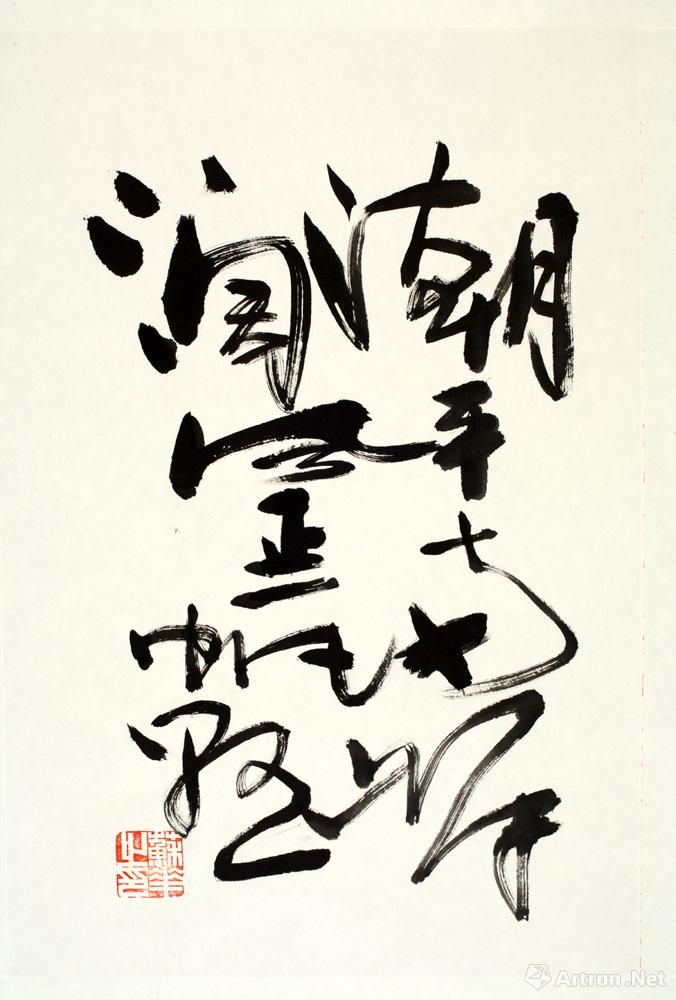 潮平两岸
濶风正一帆悬
Artron.Net